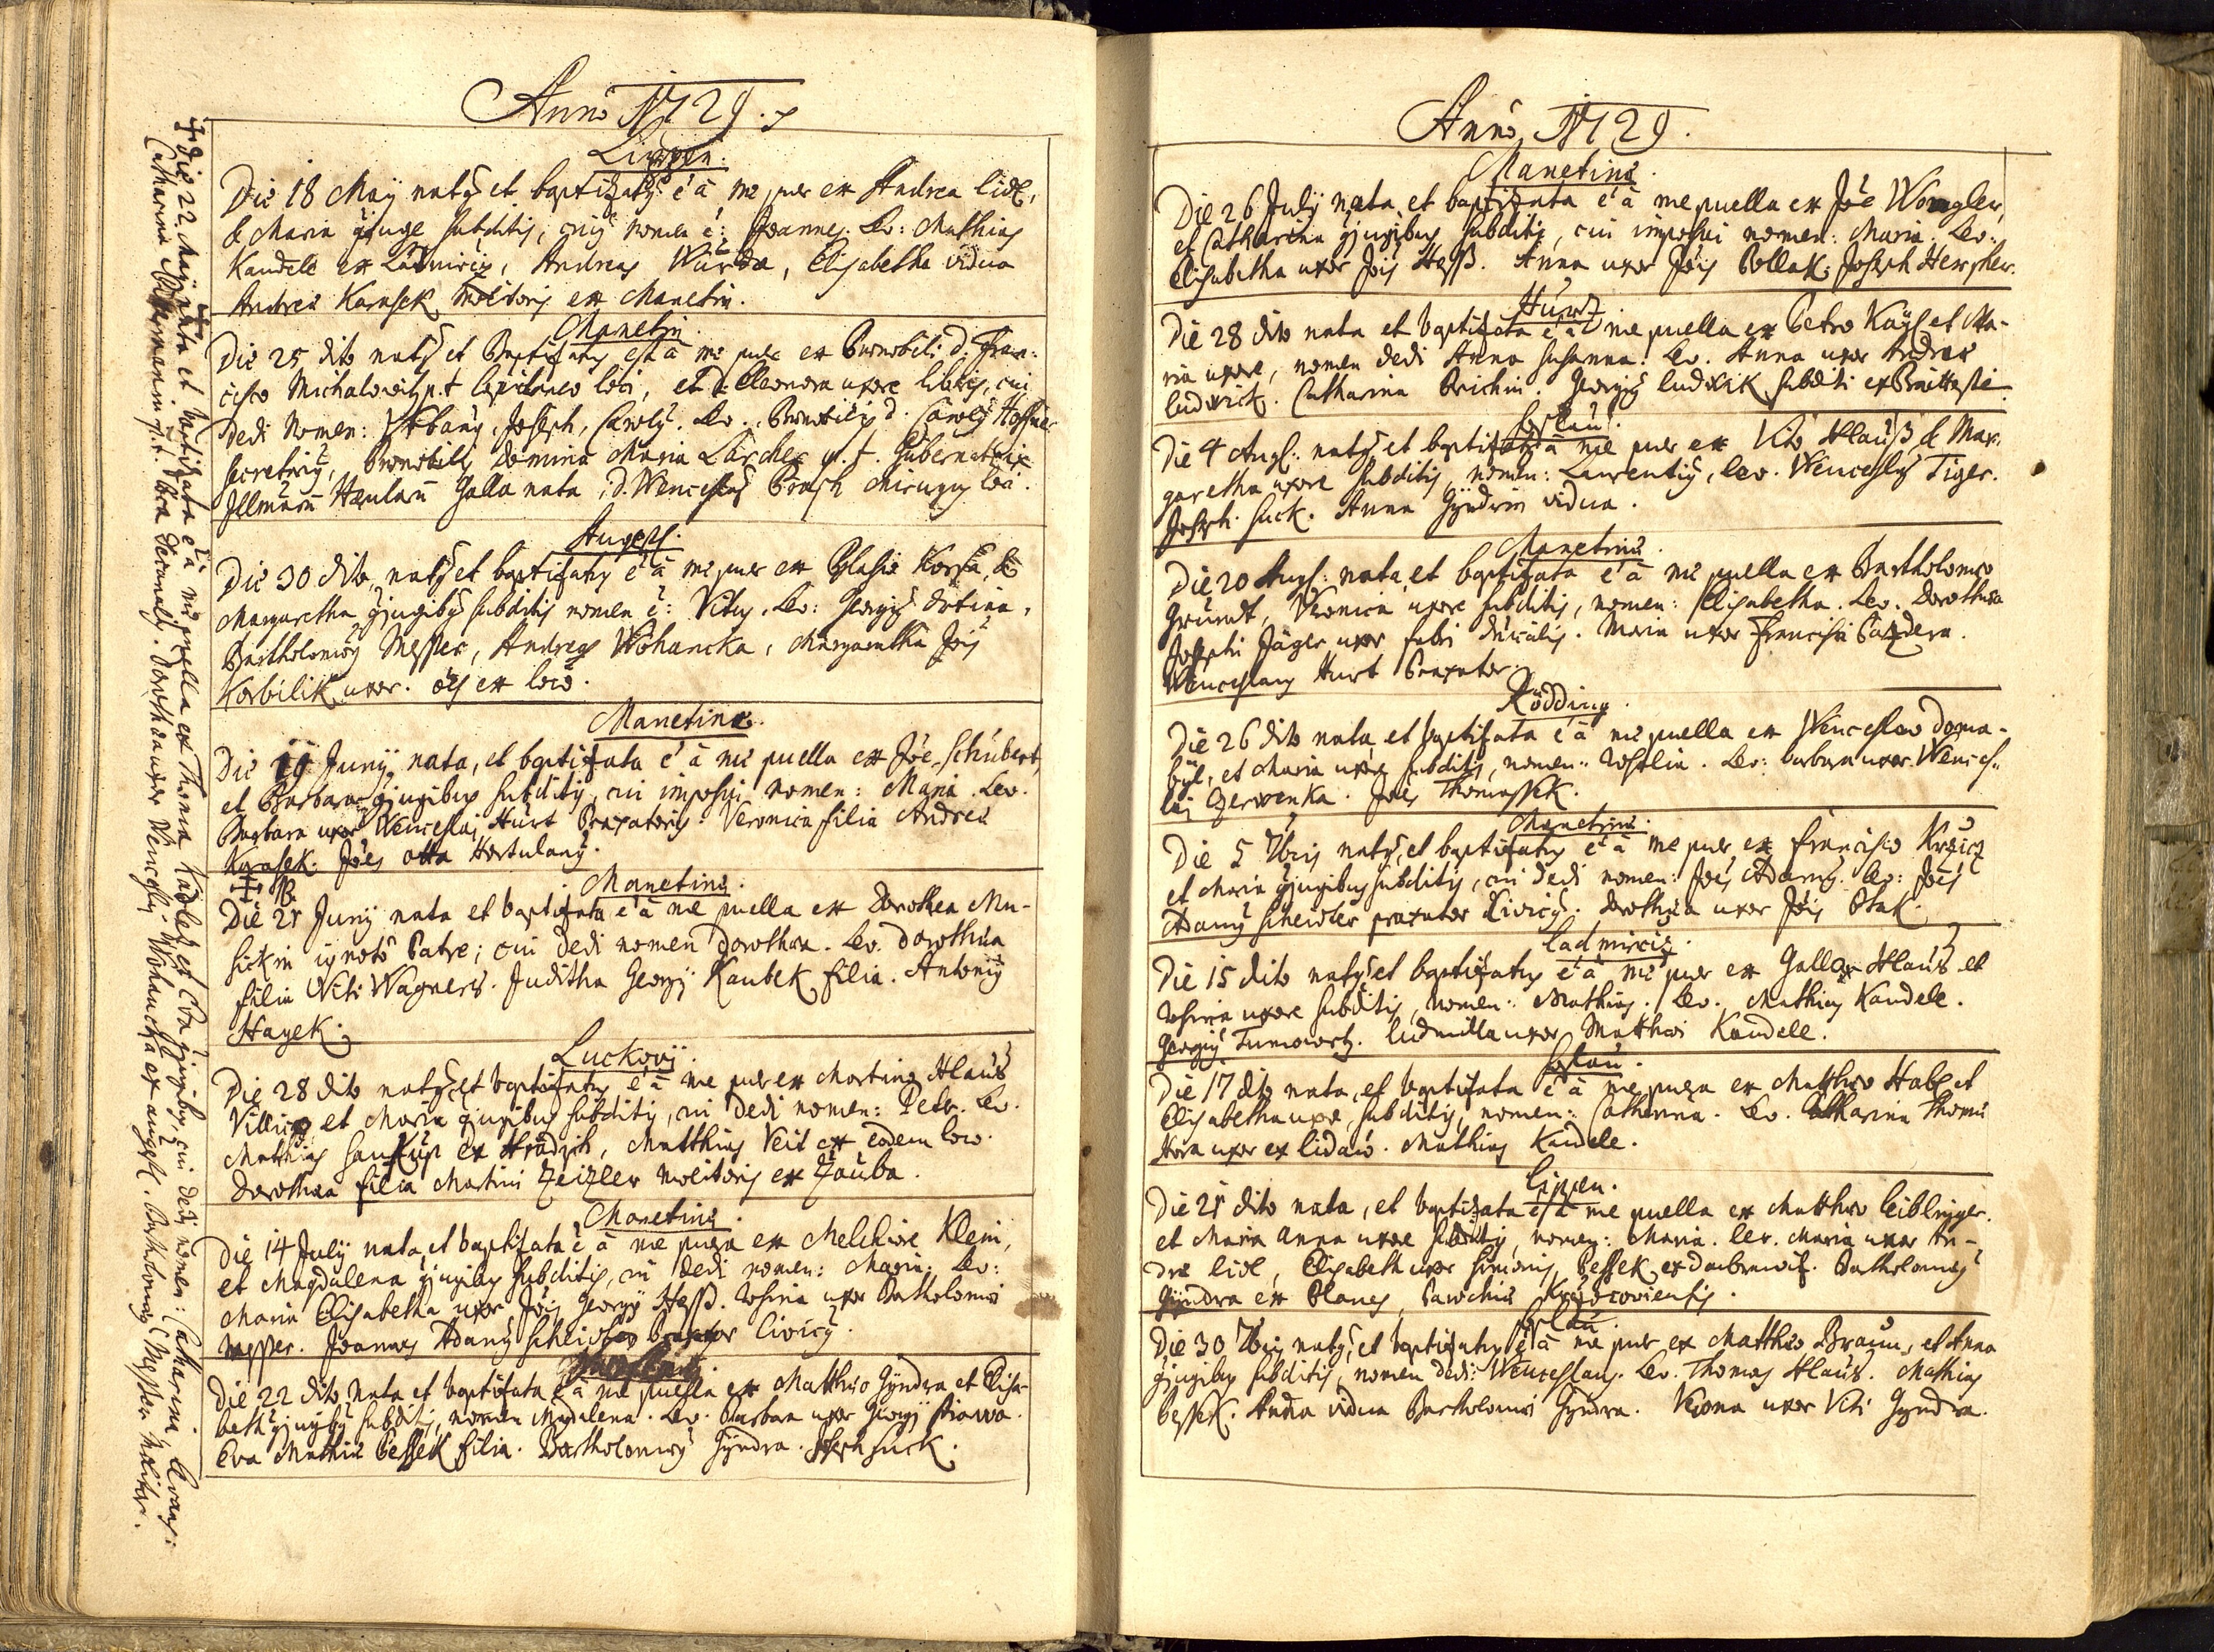 Anno 1729.
Lippen.
Die 18 Maÿ natꝰ et baptizatꝰ ē à me puer ex Andrea Lidl,
& Maria gjuge subditis, cujꝰ nomen ē: Joannes. Lev: Mathias
Kandele ex Ladmiriz, Andreas Wurda, Elisabetha vidua
Andreæ Karasek Molitoris ex Manetin.
Manetin.
Die 25 dito natꝰ et Baptizatus est à me puer ex Prænobili d. Fran:
cisco Michalowitz p.t. loci, et d. Eleonora uxore liberis, cui
Dedi Nomen: Urbanꝰ, Joseph, Carolꝰ. Lev. d. Carolꝰ Hoffner
secretariꝰ, Prænobilis Domina Maria p.t. Gubernatrix
Galla nata, d. Wenceslaꝰ Chirurgus loci.
Augezl.
Die 30 dito natꝰ et baptizatus ē à me puer ex Blasio Korfa, &
Margaretha gjugibꝰ subditis nomen ē: Vitus. Lev: Georgiꝰ Dotina,
Bartholomeꝰ Messer, Andreas Wohancka, Margaretha Jois
Korbilik uxor. oēs ex loco.
Manetinæ.
Die 19 Junÿ nata, et baptizata ē à me puella ex Joe Schubert,
et Barbara gjugibus subditis, cui imposui nomen: Maria. Lev.
Barbara uxor Wenceslaj Hurt Braxatoris. Veronica filia Andreæ
Karasek. Joēs Otta Hortulanꝰ.
‡ NB.
Manetinæ.
Die 21 Junÿ nata et baptizata ē à me puella ex Dorothea Mu-
sickin ignoto Patre; cui dedi nomen Dorothæa. Lev. Dorothæa
filia Viti Wagneris. Juditha Georgÿ Kaubek filia. Antoniꝰ
Hayek.
Luckovÿ.
Die 28 dito natꝰ, et baptizatus ē à me puer ex Martino Hlaus
Villico et Maria gjugibus subditis, cui dedi nomen: Petr. Lev.
Mathias Saukup ex Hradzisst, Matthias Veit ex eodem loco.
Dorothæa filia Martini Zeizler Molitoris ex Zauba.
Manetinæ.
Die 14 Julÿ nata, et baptizata ē à me puella ex Melchiore Klein,
et Magdalena gjugibus subditis, cui dedi nomen: Maria. Lev:
Maria Elisabetha uxor Jois Georgÿ Hess. Rosina uxor Bartholomei
Messer. Joannes Adamꝰ Scheidler Braxator Civicꝰ.
Die 22 dito nata et baptizata ē à me puella ex Matthæo Gÿndra et Elisa-
beth gjugibꝰ subditis, nomen Magdalena. Lev. Barbara uxor Georgÿ Krawa.
Eva Mathiæ Pessek filia. Bartholomeꝰ Gÿndra. Joseph Suck.
‡ Die 22. Maÿ nata et baptizata ē à me puella ex Thoma Kadlez et Eva gjugibus, cui dedi nomen: Catharina, Levans:
Catharina p.t. Decanalis. Dorothæa uxor Wenceslai Wohancka ex Augezl. Bartholomeꝰ Messer Molitor.
Anno 1729.
Manetinæ.
Die 26 Julÿ nata, et baptizata ē à me puella ex Joe Wongler,
et Catharina gjugibus subditis, cui imposui nomen: Maria. Lev:
Elisabetha uxor Jois Hess. Anna uxor Jois Pollak. Joseph Herscher.
Hurz.
Die 28 dito nata et baptizata ē à me puella ex Petro Kaÿsl et Ma-
ria uxore, nomen dedi Anna Susanna. Lev. Anna uxor Andreæ
Ludwick. Catharina Brichin. Georgiꝰ Ludwik subditi ex
Lostau.
Die 4 Augs: natꝰ et baptizatꝰ à me puer ex Vito Hlauß & Mar-
garetha uxore subditis, nomen: Laurentiꝰ, Lev. Wenceslꝰ Tiger.
Joseph Suck. Anna Gÿndrin vidua.
Manetinæ.
Die 20 Augs: nata, et baptizata ē à me puella ex Bartholomeo
Grundt, Veronica uxore subditis, nomen: Elisabetha. Lev. Dorothæa
Josephi Jäger uxor fabri murarii. Maria uxor Francisci Paxdera.
Wenceslaus Hurt Braxator.
Rödding.
Die 26 dito nata, et baptizata ē à me puella ex Wenceslao Doma-
bÿl, et Maria uxore subditis, nomen: Rosalia. Lev: Barbara uxor Wences-
lai Czerwenka. Joēs Thomassek.
Manetinæ.
Die 5 7bris natꝰ, et baptizatus ē à me puer ex Francisco Krzicz
et Maria gjugibus subditis, cui dedi nomen: Joēs Adamꝰ. Lev: Joēs
Adamꝰ Scheidler praxator Civicꝰ. Dorothæa uxor Jois Ptak.
Ladmiriz.
Die 15 dito natꝰ et baptizatus ē à me puer ex Gallo Hlaus et
Rosina uxore subditis, nomen: Mathias. Lev. Mathias Kandele.
Georgiꝰ Tumowitz. Ludmilla uxor Matthæi Kandele.
Lostau.
Die 17 dito nata, et baptizata ē à me puella ex Matthæo Habl et
Elisabetha uxore subditis, nomen: Catharina. Lev. Catharina Thomæ
Hora uxor ex Lidaw. Mathias Kandele.
Lippen.
Die 21 dito nata, et baptizata ē à me puella ex Matthæo Leiblinger.
et Maria Anna uxore subditis, nomen: Maria. Lev. Maria uxor An-
dreæ Lidl, Elisabeth uxor Simonis Pessek ex Daubrawiz. Bartholomeꝰ
Gÿndra ex Planes,
Lostau.
Die 30 7bris natꝰ, et baptizatus ē à me puer ex Matthæo Braun, et Anna
gjugibus subditis, nomen dedi: Wenceslaus. Lev. Thomas Hlaus. Mathias
Pessek. Anna vidua Bartholomei Gÿndra. Verona uxor Viti Gÿndra.